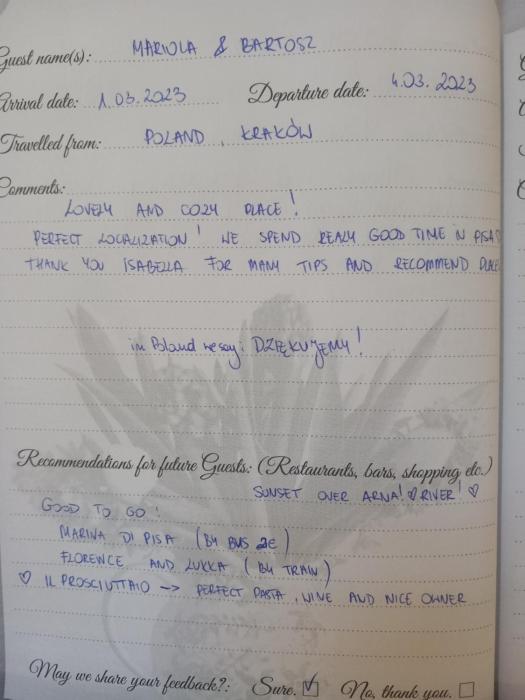 Guest name(s): MARIOLA & BARTOSZ
Arrival date: 1.03.2023 Departure date: 4.03.2023
Travelled from: POLAND, KRAKÓW
Comments:
LOVELY AND COZY PLACE!
PERFECT LOCALIZATION! WE SPEND REALY GOOD TIME IN PISA
THANK YOU ISABELLA FOR MANY TIPS AND RECOMMEND PLACE
in Poland we say: DZIĘKUJEMY!
Recommendations for future Guests: (Restaurants, bars, shopping etc.)
SUNSET OVER ARNA! ♡ RIVER! ♡
GOOD TO GO!
MARINA DI PISA (BY BUS 2€)
FLORENCE AND LUKKA (BY TRAIN)
♡ IL PROSCIUTTAIO -> PERFECT PASTA, WINE AND NICE OWNER
May we share your feedback?: Sure. ☑ No, thank you. ☐